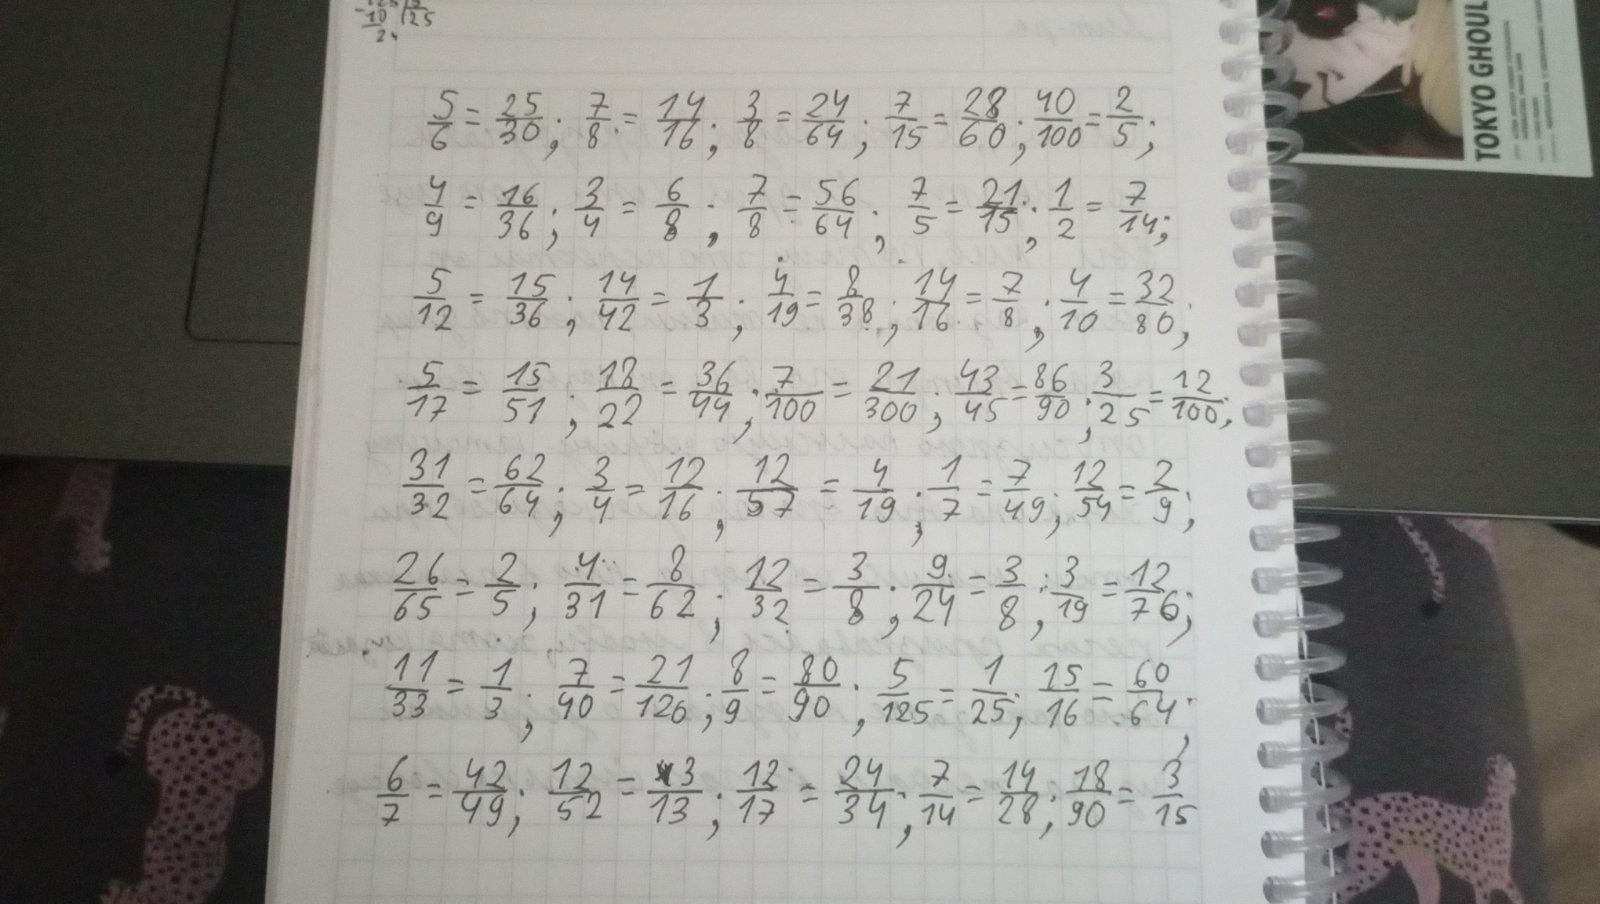 125 5
-10 25
24
TOKYO GHOUL
5/6 = 25/30; 7/8 = 14/16; 3/8 = 24/64; 7/15 = 28/60; 40/100 = 2/5;
4/9 = 16/36; 3/4 = 6/8; 7/8 = 56/64; 7/5 = 21/15; 1/2 = 7/14;
5/12 = 15/36; 14/42 = 1/3; 4/19 = 8/38; 14/16 = 7/8; 4/10 = 32/80;
5/17 = 15/51; 18/22 = 36/44; 7/100 = 21/300; 43/45 = 86/90; 3/25 = 12/100;
31/32 = 62/64; 3/4 = 12/16; 12/57 = 4/19; 1/7 = 7/49; 12/54 = 2/9;
26/65 = 2/5; 4/31 = 8/62; 12/32 = 3/8; 9/24 = 3/8; 3/19 = 12/76;
11/33 = 1/3; 7/40 = 21/120; 8/9 = 80/90; 5/125 = 1/25; 15/16 = 60/64;
6/7 = 42/49; 12/52 = 3/13; 12/17 = 24/34; 7/14 = 14/28; 18/90 = 3/15